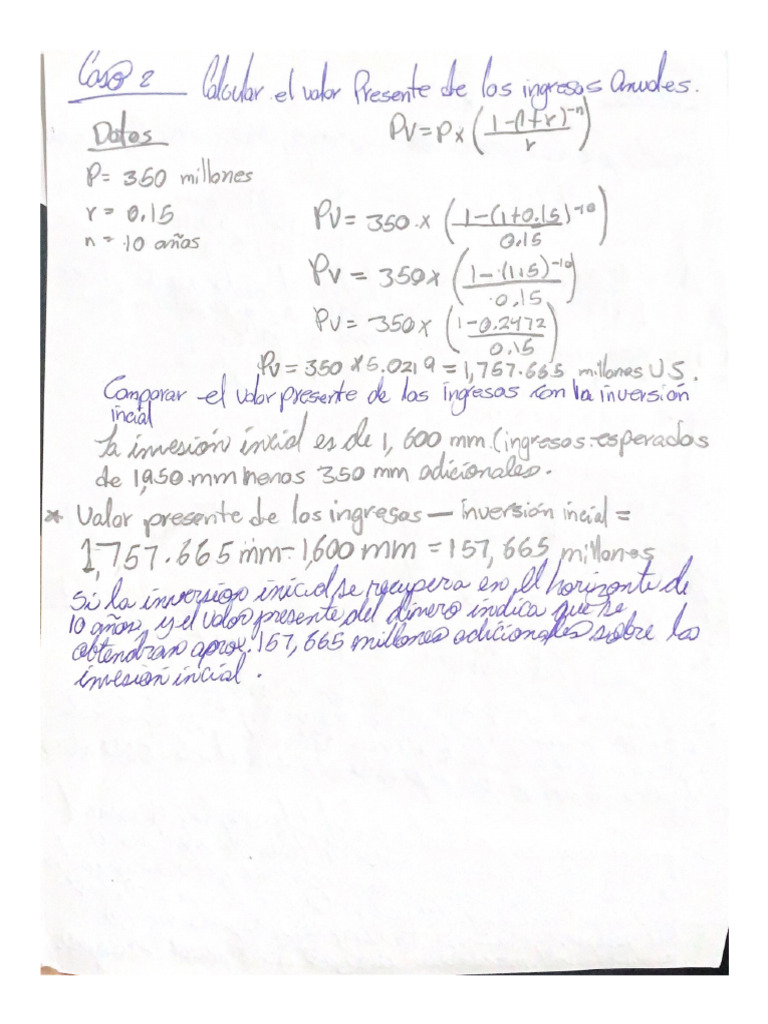 Caso 2 Calcular el valor Presente de los ingresos Anuales.
Datos
PV = P x ( 1-(1+r)^-n / r )
P = 350 millones
r = 0.15
n = 10 años
PV = 350 x ( 1-(1+0.15)^-10 / 0.15 )
PV = 350 x ( 1-(1.15)^-10 / 0.15 )
PV = 350 x ( 1-0.2472 / 0.15 )
PV = 350 x 5.0219 = 1,757.665 millones U S.
Comparar el valor presente de los ingresos con la inversión
incial
la invesión incial es de 1, 600 mm (ingresos esperados
de 1,950 mm menos 350 mm adicionales.
* Valor presente de los ingresos — inversión incial =
1,757.665 mm - 1,600 mm = 157, 665 millones
Si la inversion inicial se recupera en el horizonte de
10 años, y el valor presente del dinero indica que se
obtendran aprox. 157, 665 millones adicionales sobre la
invesión incial.